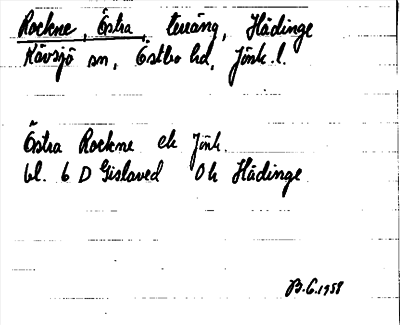 Rockne, Östra, terräng, Hådinge
Kävsjö sn, Östbo hd, Jönk. l.
Östra Rockne ek Jönk.
bl. 6 D Gislaved Ok Hådinge
B.G. 1958